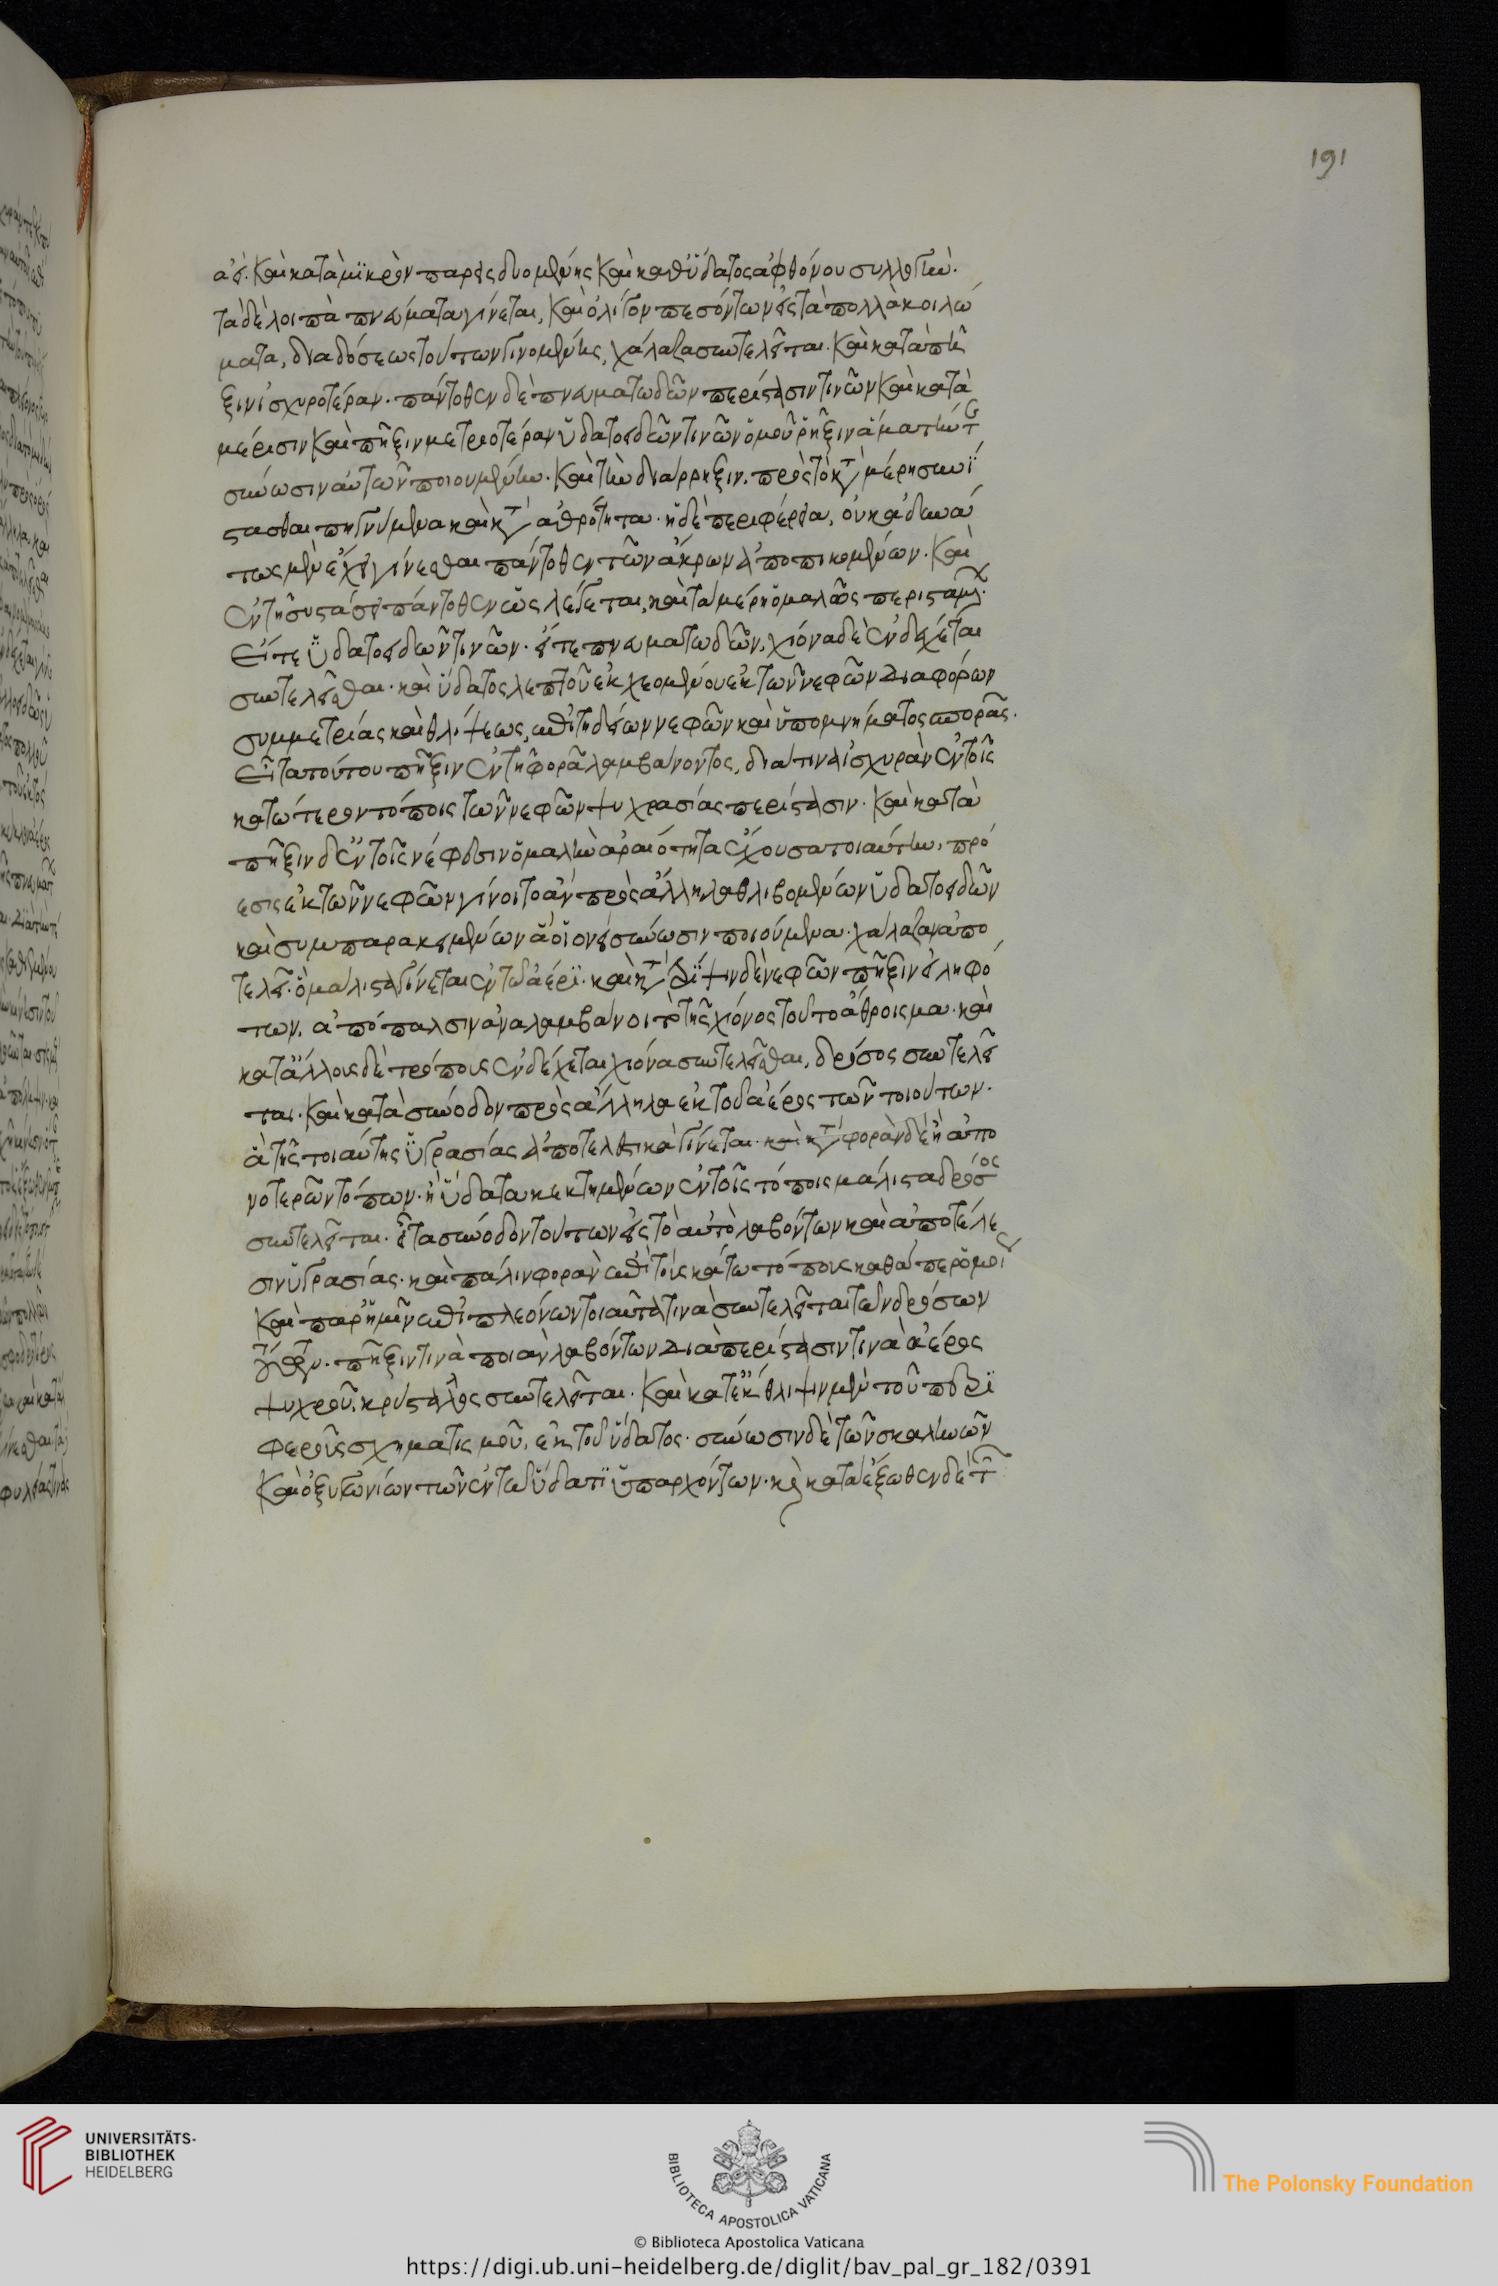 191
αεί. καὶ κατὰ μϊκρὸν παρεισδυομένης καὶ καθ' ὕδατος ἀφθόνου συλλογὴν.
τὰ δὲ λοιπὰ πνεύματα γίνεται, καὶ ὀλίγον πεσόντων εἰς τὰ πολλὰ κοιλώ
ματα, διαδόσεως τούτων γινομένης, χάλαζα συντελεῖται. καὶ κατὰ πῆ
ξιν ἰσχυροτέραν. πάντοθεν δὲ πνευματωδῶν περίστασιν τινῶν καὶ κατὰ
μέρισιν καὶ πῆξιν μετριοτέραν ὕδατοειδῶν τινῶν ὁμοῦ ῥῆξιν ἅμα τήν τε
σύνωσιν αὐτῶν ποιουμένην. καὶ τὴν διάρρηξιν. πρὸς τὸ κατὰ μέρη συνί
στασθαι πηγνύμενα καὶ κατὰ ἀθρότητα. ἡ δὲ περιφέρεια, οὐκ ἀδυνά
τως μὲν ἔχει γίνεσθαι πάντοθεν τῶν ἄκρων ἀποτηκομένων. καὶ
ἐν τῇ συστάσει πάντοθεν ὡς λέγεται, κατὰ μέρη ὁμαλῶς περισταμέ.
εἴτε ὕδατοειδῶν τινῶν. εἴτε πνευματωδῶν, χιόνα δὲ ἐνδέχεται
συντελεῖσθαι. καὶ ὕδατος λεπτοῦ ἐκχεομένου ἐκ τῶν νεφῶν διαφόρων
συμμετρίας καὶ θλίψεως, ἐπιτηδείων νεφῶν καὶ ὑπομνήματος σπορᾶς.
εἶτα τούτου πῆξιν ἐν τῇ φορᾷ λαμβάνοντος, διά τινα ἰσχυρὰν ἐν τοῖς
κατώτερον τόποις τῶν νεφῶν ψυχρασίας περίστασιν. καὶ κατὰ
πῆξιν δ' ἐν τοῖς νέφεσιν ὁμαλὴν ἀραιότητα ἔχουσα τοιαύτην, πρό
εσις ἐκ τῶν νεφῶν γίνοιτο ἂν πρὸς ἄλληλα θλιβομένων ὕδατοειδῶν
καὶ συμπαρακειμένων ἃ οἷον εἰ σύνωσιν ποιούμενα. χάλαζαν ἀπο
τελεῖ. ὃ μάλιστα γίνεται ἐν τῷ ἀέρϊ. καὶ κατὰ τρῖψιν δὲ νεφῶν πῆξιν εἰληφό
των. ἀπόπαλσιν ἀναλαμβάνοι τὸ τῆς χιόνος τοῦτο ἄθροισμα. καὶ
κατ' ἄλλους δὲ τρόπους ἐνδέχεται χιόνα συντελεῖσθαι, δρόσος συντελεῖ
ται. καὶ κατὰ σύνοδον πρὸς ἄλληλα ἐκ τοῦ ἀέρος τῶν τοιούτων.
ἃ τῆς τοιαύτης ὑγρασίας ἀποτελεστικὰ γίνεται. καὶ κατὰ φορὰν δὲ ἢ ἀπο
νοτερῶν τόπων. ἢ ὕδατα κεκτημένων ἐν τοῖς τόποις μάλιστα δρόσος
συντελεῖται. εἶτα σύνοδον τούτων εἰς τὸ αὐτὸ λαβόντων καὶ ἀποτέλε
σιν ὑγρασίας. καὶ πάλιν φορὰν ἐπὶ τοὺς κάτω τόπους καθάπερ ὁμοί
καὶ παρ' ἡμῖν ἐπὶ πλεόνων τοιαῦτά τινα συντελεῖται τῶν δρόσων
πῆξιν τινὰ ποιὰν λαβόντων διὰ περίστασιν τινὰ ἀέρος
ψυχροῦ. κρύσταλλος συντελεῖται. καὶ κατ' ἔκθλιψιν μὲν τοῦ πεδϊ
φεροῦς σχηματισμοῦ, ἐκ τοῦ ὕδατος. σύνωσιν δὲ τῶν σκαληνῶν
καὶ ὀξυγωνίων τῶν ἐν τῷ ὕδατϊ ὑπαρχόντων. καὶ κατὰ ἔξωθεν δὲ τῶν
UNIVERSITÄTS-
BIBLIOTHEK
HEIDELBERG
BIBLIOTECA APOSTOLICA VATICANA
© Biblioteca Apostolica Vaticana
The Polonsky Foundation
https://digi.ub.uni-heidelberg.de/diglit/bav_pal_gr_182/0391